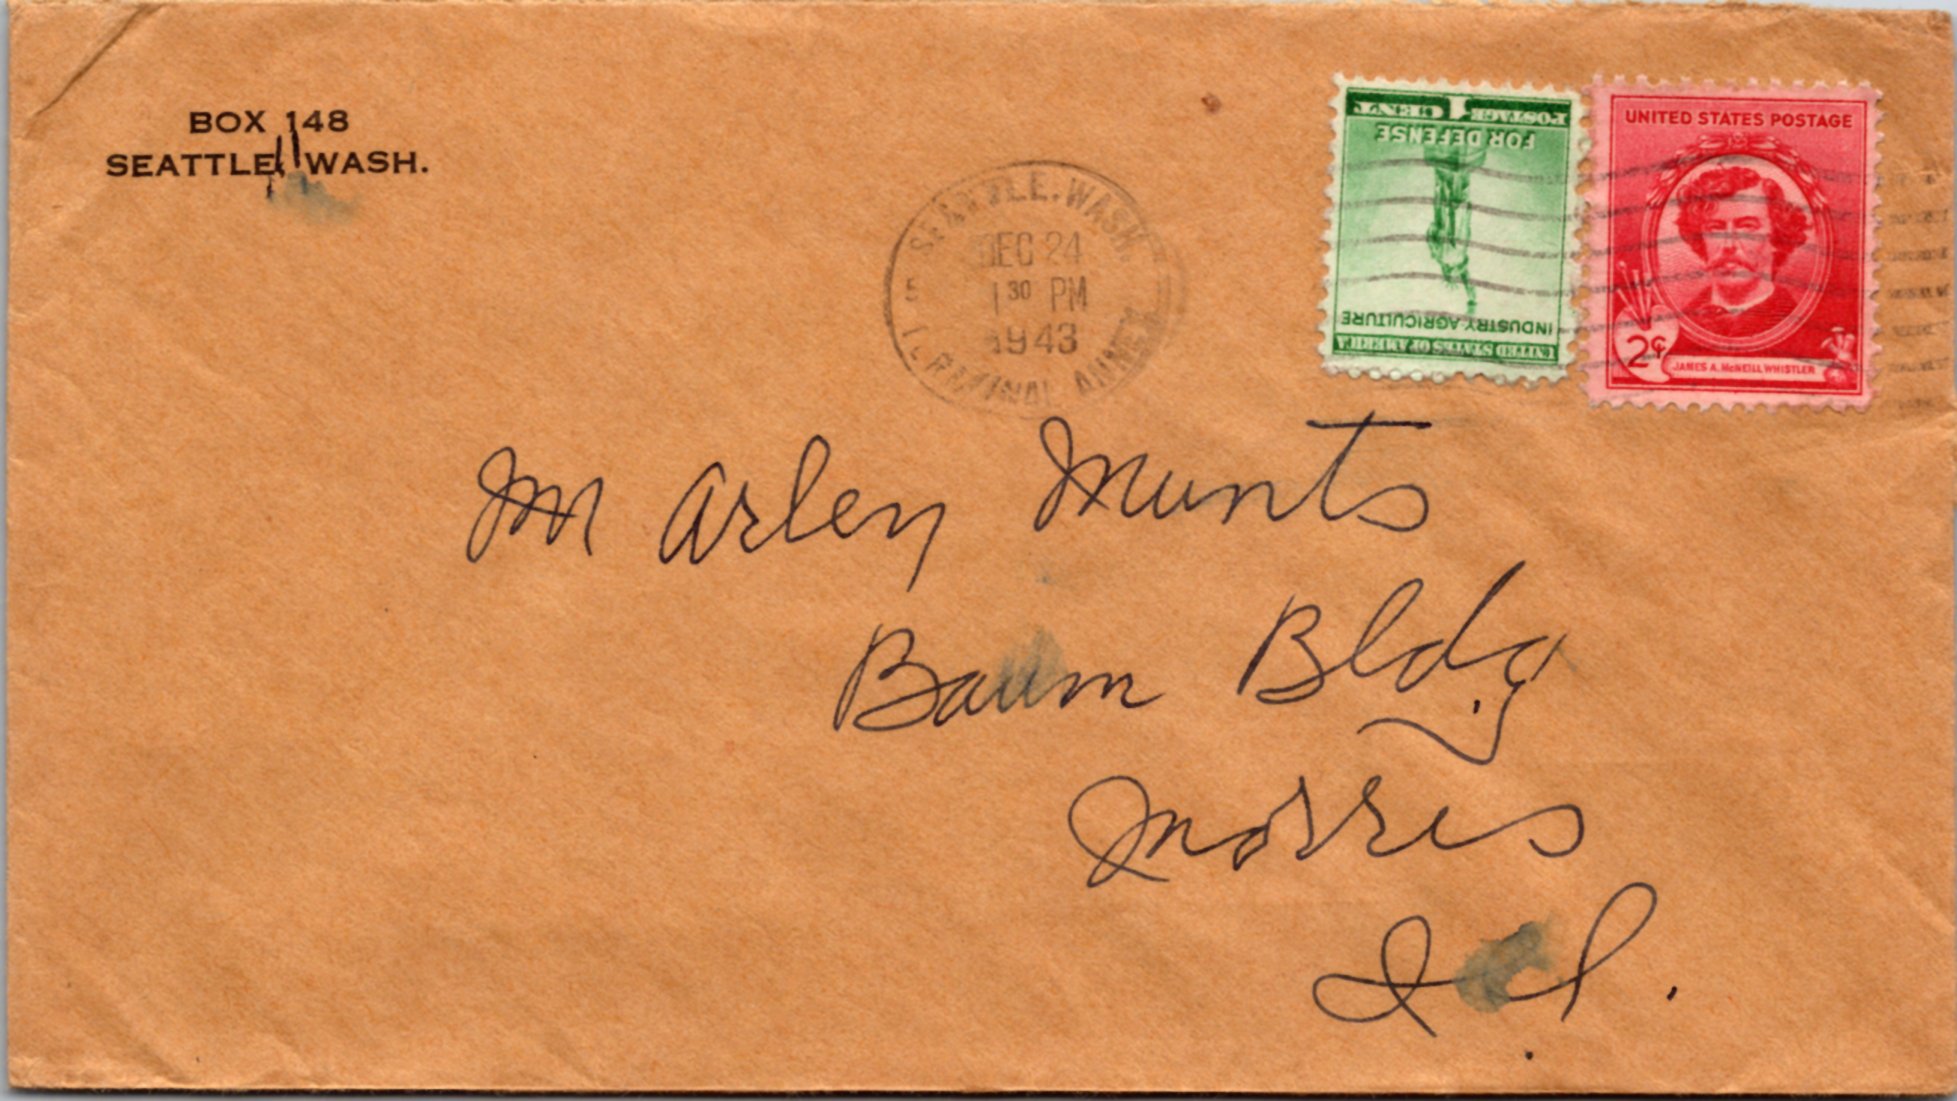 BOX 148
SEATTLE, WASH.
SEATTLE, WASH.
DEC 24
1 30 PM
1943
5
TERMINAL ANNEX
1 CENT 1 POSTAGE
FOR DEFENSE
INDUSTRY AGRICULTURE
UNITED STATES OF AMERICA
UNITED STATES POSTAGE
2¢
JAMES A. McNEILL WHISTLER
M Arley Munts
Baum Bldg
Morris
Ill.